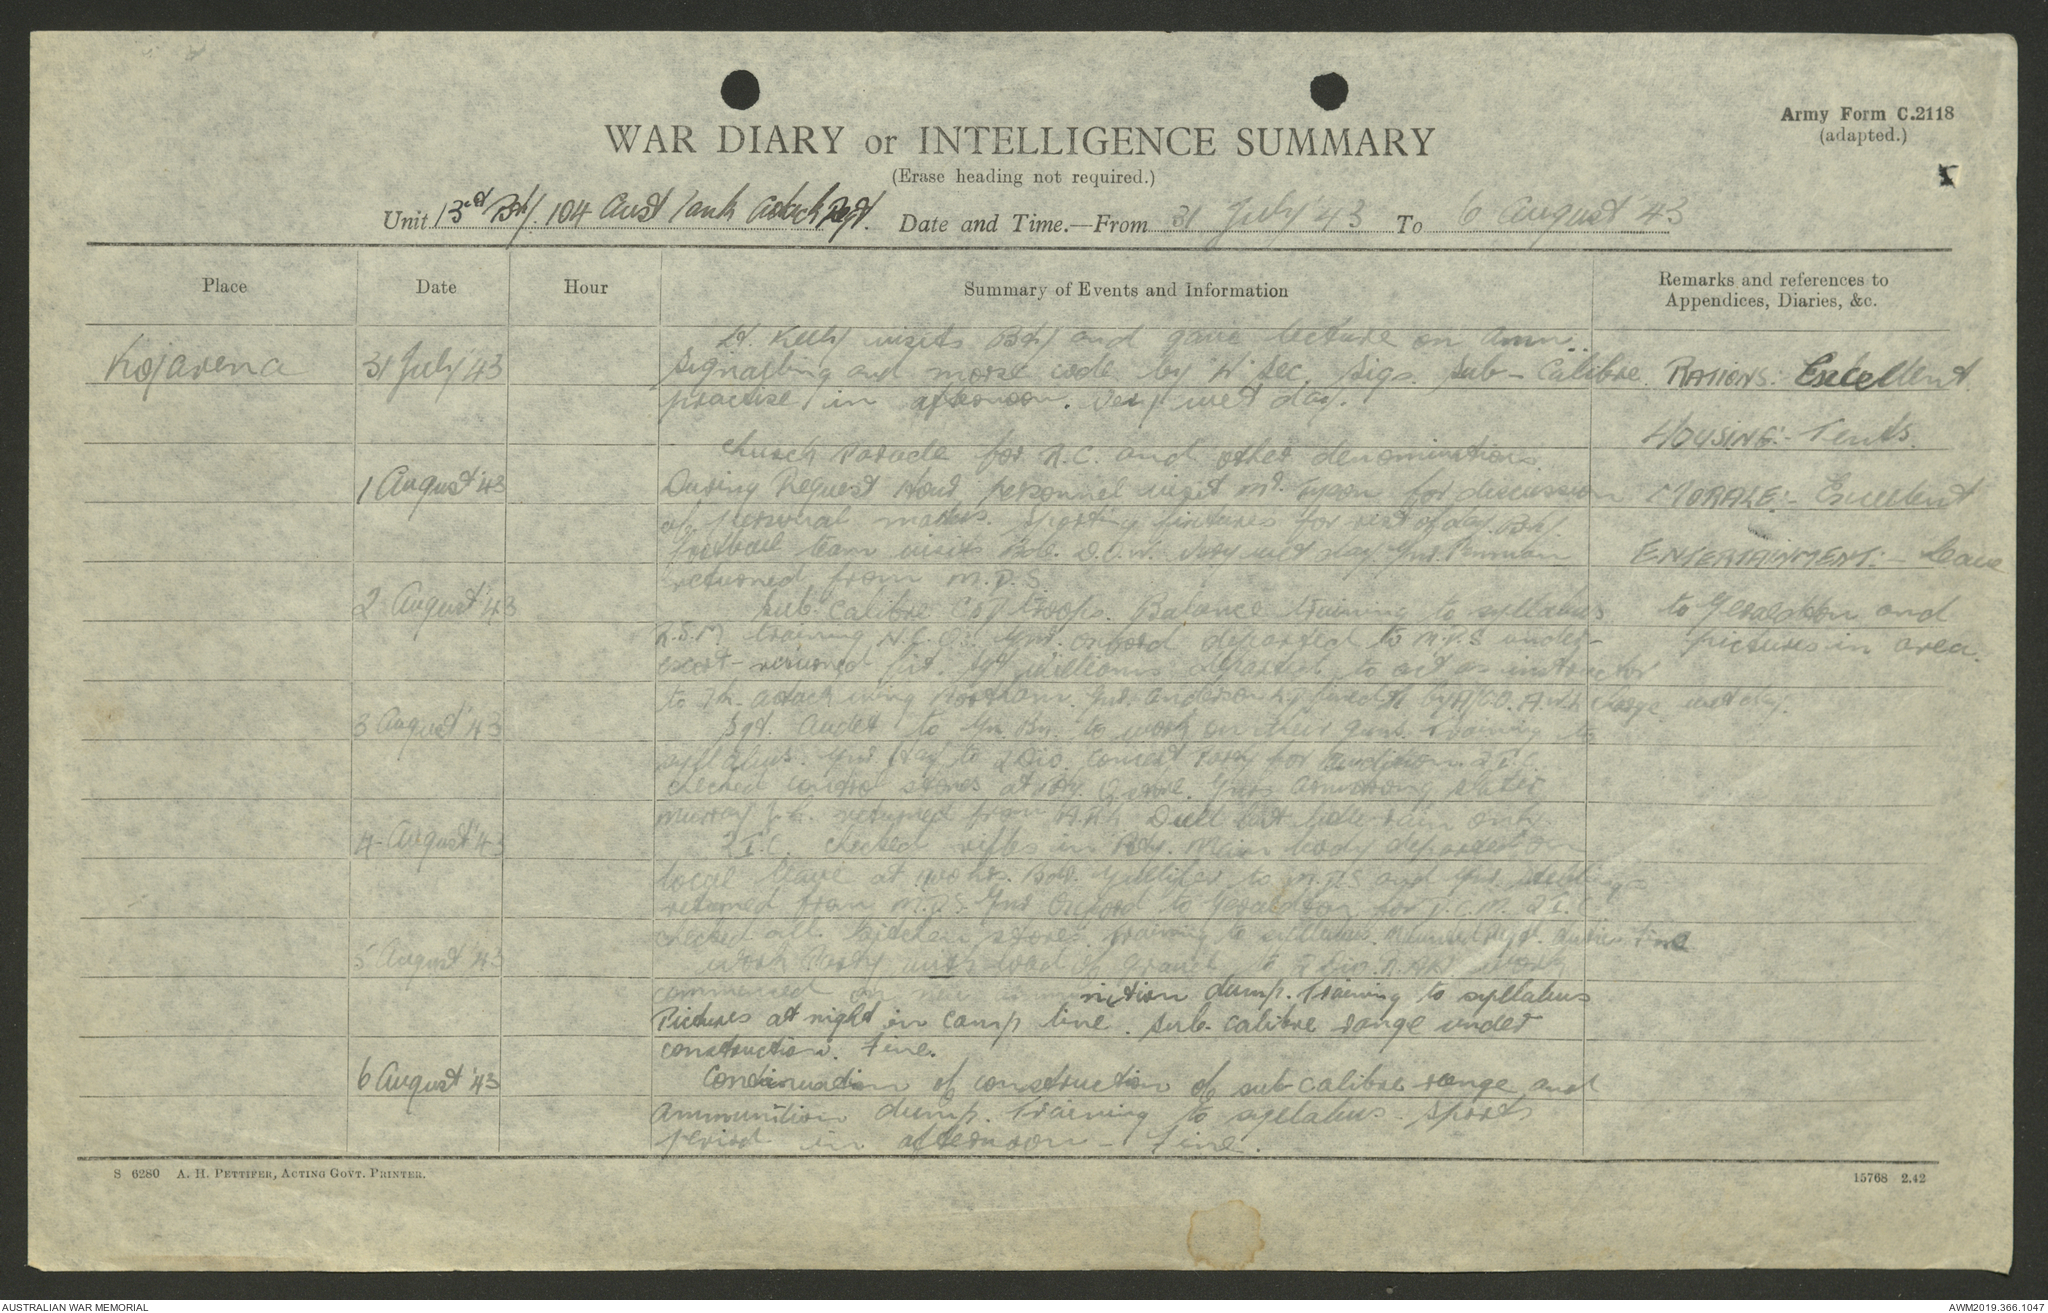 Army Form C.2118
(adapted.)
WAR DIARY or INTELLIGENCE SUMMARY
(Erase heading not required.)
Unit 13th Bty. 104 Aust Tank Attack Regt. Date and Time.—From 31 July '43 To 6 August '43
Place Date Hour Summary of Events and Information Remarks and references to Appendices, Diaries, &c.
Lt. Kelly visits Bty and gave lecture on amm..
Kojarena 31 July '43 Signalling and morse code by 'H' Sec. Sigs. Sub-Calibre RATIONS: Excellent
practise in afternoon. Very wet day.
HOUSING:- Tents.
Church Parade for R.C. and other denominations.
1 August '43 During Request Hour, personnel visit Mr. for discussion MORALE:- Excellent
of personal matters. Sporting fixtures for rest of day. Bty
football team visits Bob. D.O.W. Very wet day. Gnr. Penman ENTERTAINMENT:- Leave
returned from M.D.S.
2 August '43 Sub-Calibre C & D troops. Balance training to syllabus to Geraldton and
R.S.M. training N.C.O's. Gnr. Oxford departed to M.D.S under pictures in area.
escort - returned fit. Sgt Williams departed to act as instructor
to Tk. attack wing Northam. Gnr. Anderson by charge wet day.
3 August '43 Sgt. to Gn. Bn. to work on their guns. Training to
syllabus. Gnr Hay to 2 Div. Concert Party for audition. 2 I.C.
checked control stores at Gnrs Armstrong Slater
Murray J.L. returned from Dull but little rain only
4 August '43 2 I.C. checked rifles in Bty. Main body departed on
local leave at hrs. Bdr. to M.D.S and Gnr.
returned from M.D.S. Gnr Oxford to Geraldton for D.C.M. 2 I.C.
checked all kitchen stores. Training to syllabus. fine
5 August '43 Work Party with load of gravel to 2 Div. work
commenced on new ammunition dump. Training to syllabus
Pictures at night in camp line. Sub-calibre range under
construction. Fine.
6 August '43 Continuation of construction of sub-calibre range and
ammunition dump. Training to syllabus. Sports
period in afternoon - Fine.
S 6280 A. H. PETTIFER, ACTING GOVT. PRINTER. 15768 2.42
AUSTRALIAN WAR MEMORIAL AWM2019.366.1047